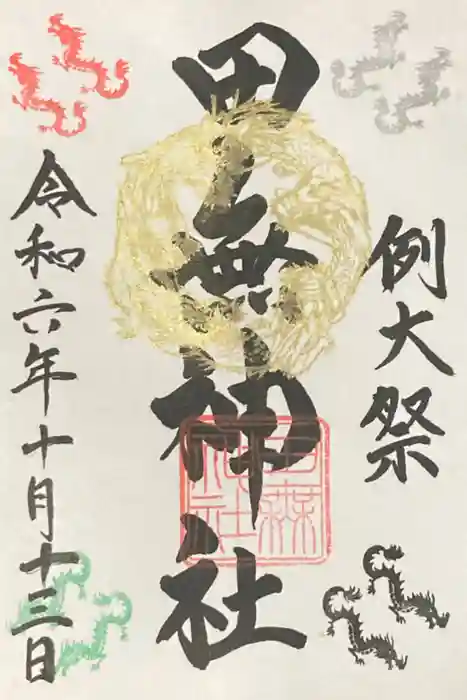 例大祭
田無神社
田無神社
令和六年十月十三日